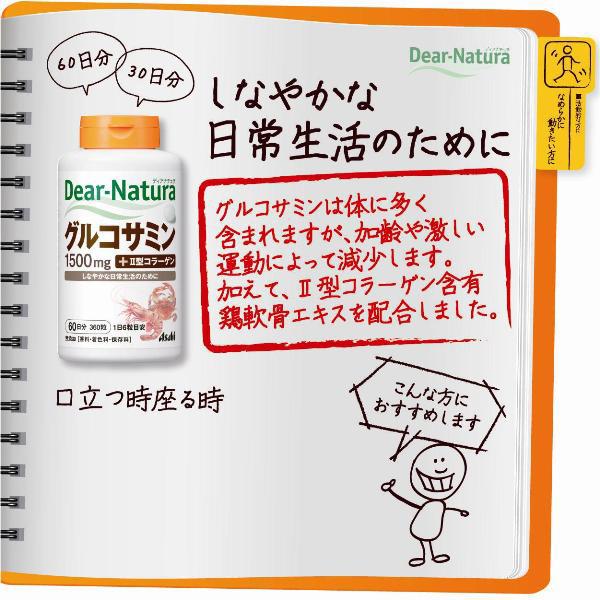 60日分
30日分
ディアナチュラ
Dear-Natura
しなやかな
日常生活のために
■活動的な方に
なめらかに
動きたい方に
グルコサミンは体に多く
含まれますが、加齢や激しい
運動によって減少します。
加えて、Ⅱ型コラーゲン含有
鶏軟骨エキスを配合しました。
ディアナチュラ
Dear-Natura
グルコサミン
1500mg +Ⅱ型コラーゲン
しなやかな日常生活のために
60日分 360粒 1日6粒目安
無添加 香料・着色料・保存料
Asahi
口立つ時座る時
こんな方に
おすすめします